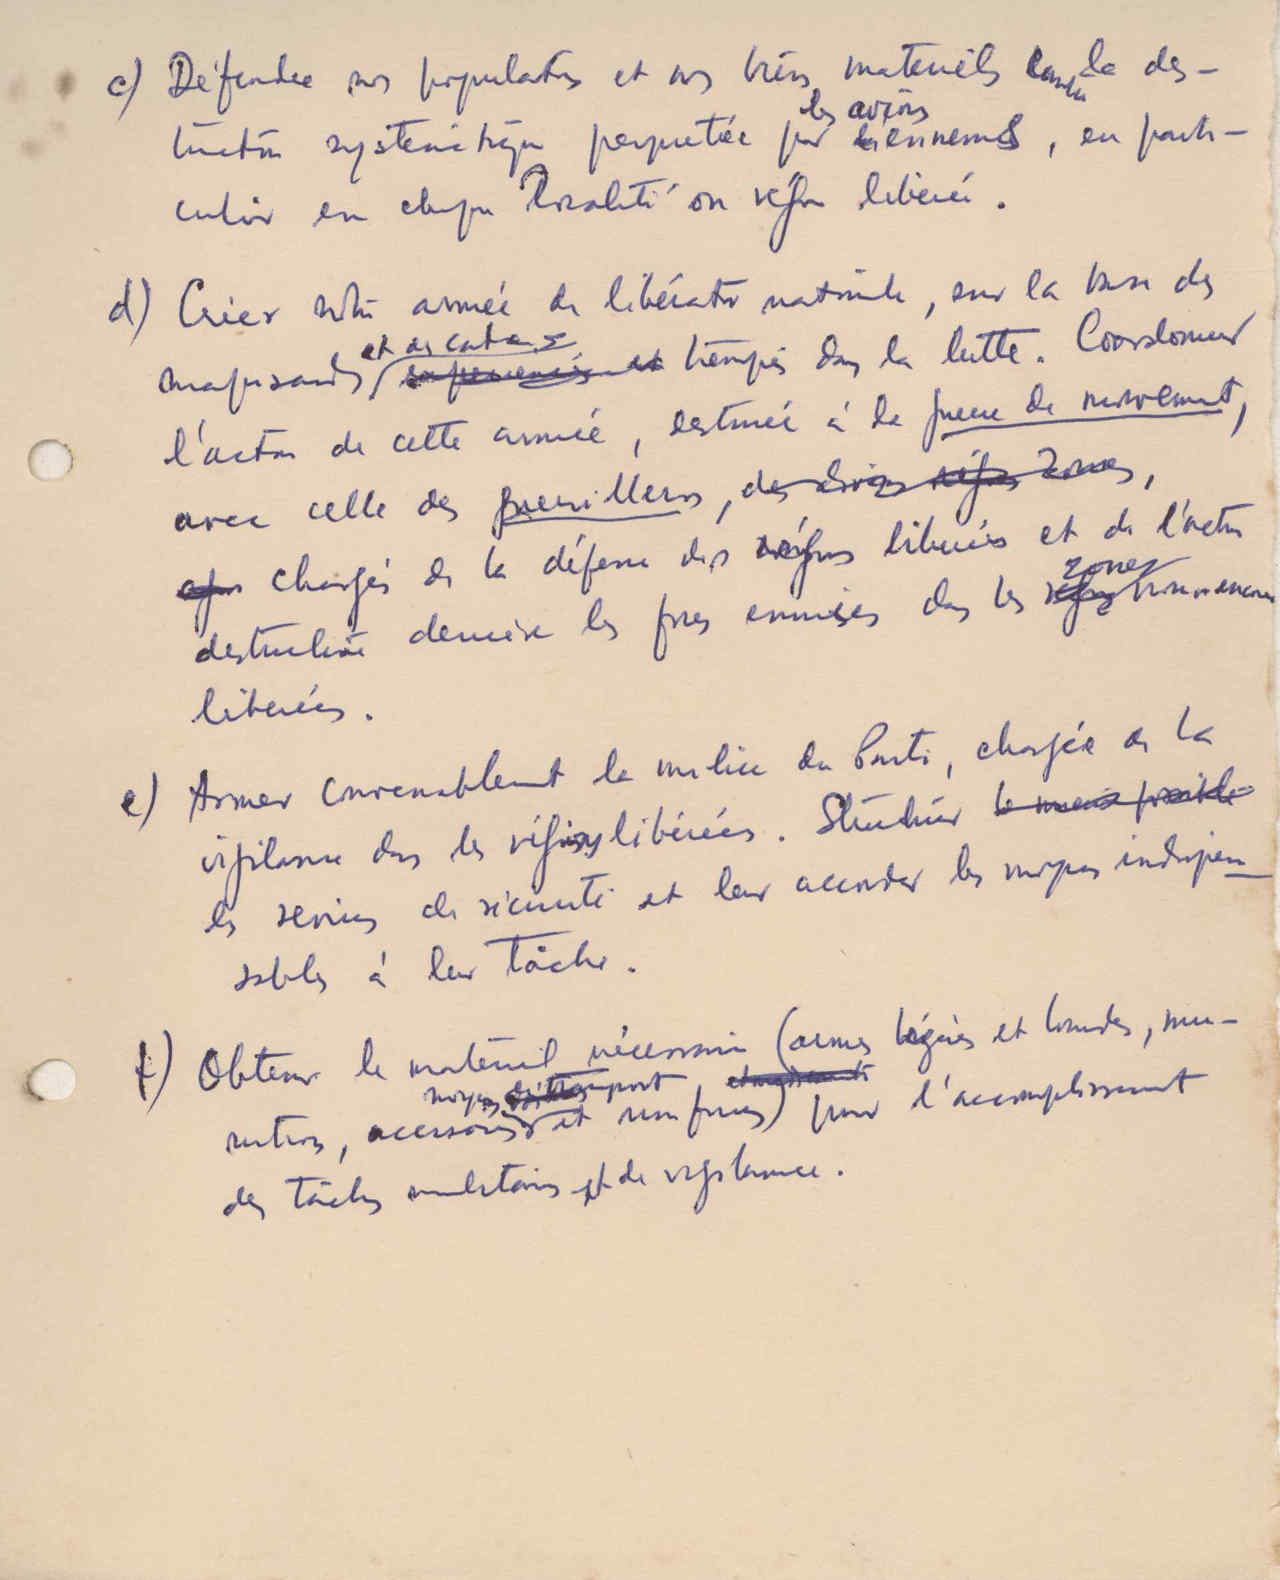 c) Défendre nos populations et nos biens matériels contre la des-
truction systématique perpetrée par les avions ennemis, en parti-
culier en chaque localité ou région libérée.
d) Créer notre armée de libération nationale, sur la base des
maquisards et des cadres trempés dans la lutte. Coordonner
l'action de cette armée, destinée à la guerre de mouvement,
avec celle des guerilleros, des régions zones,
chargés de la défense des régions libérées et de l'action
destructive derrière les forces ennemies dans les zones non encore
libérées.
e) Armer convenablement la milice du Parti, chargée de la
vigilance dans les régions libérées. Structurer le mieux possible
les services de sécurité et leur accorder les moyens indispen-
sables à leur tâche.
f) Obtenir le matériel nécessaire (armes légères et lourdes, mu-
nitions, accessoires, moyens de transport, et uniformes) pour l'accomplissement
des tâches militaires et de vigilance.